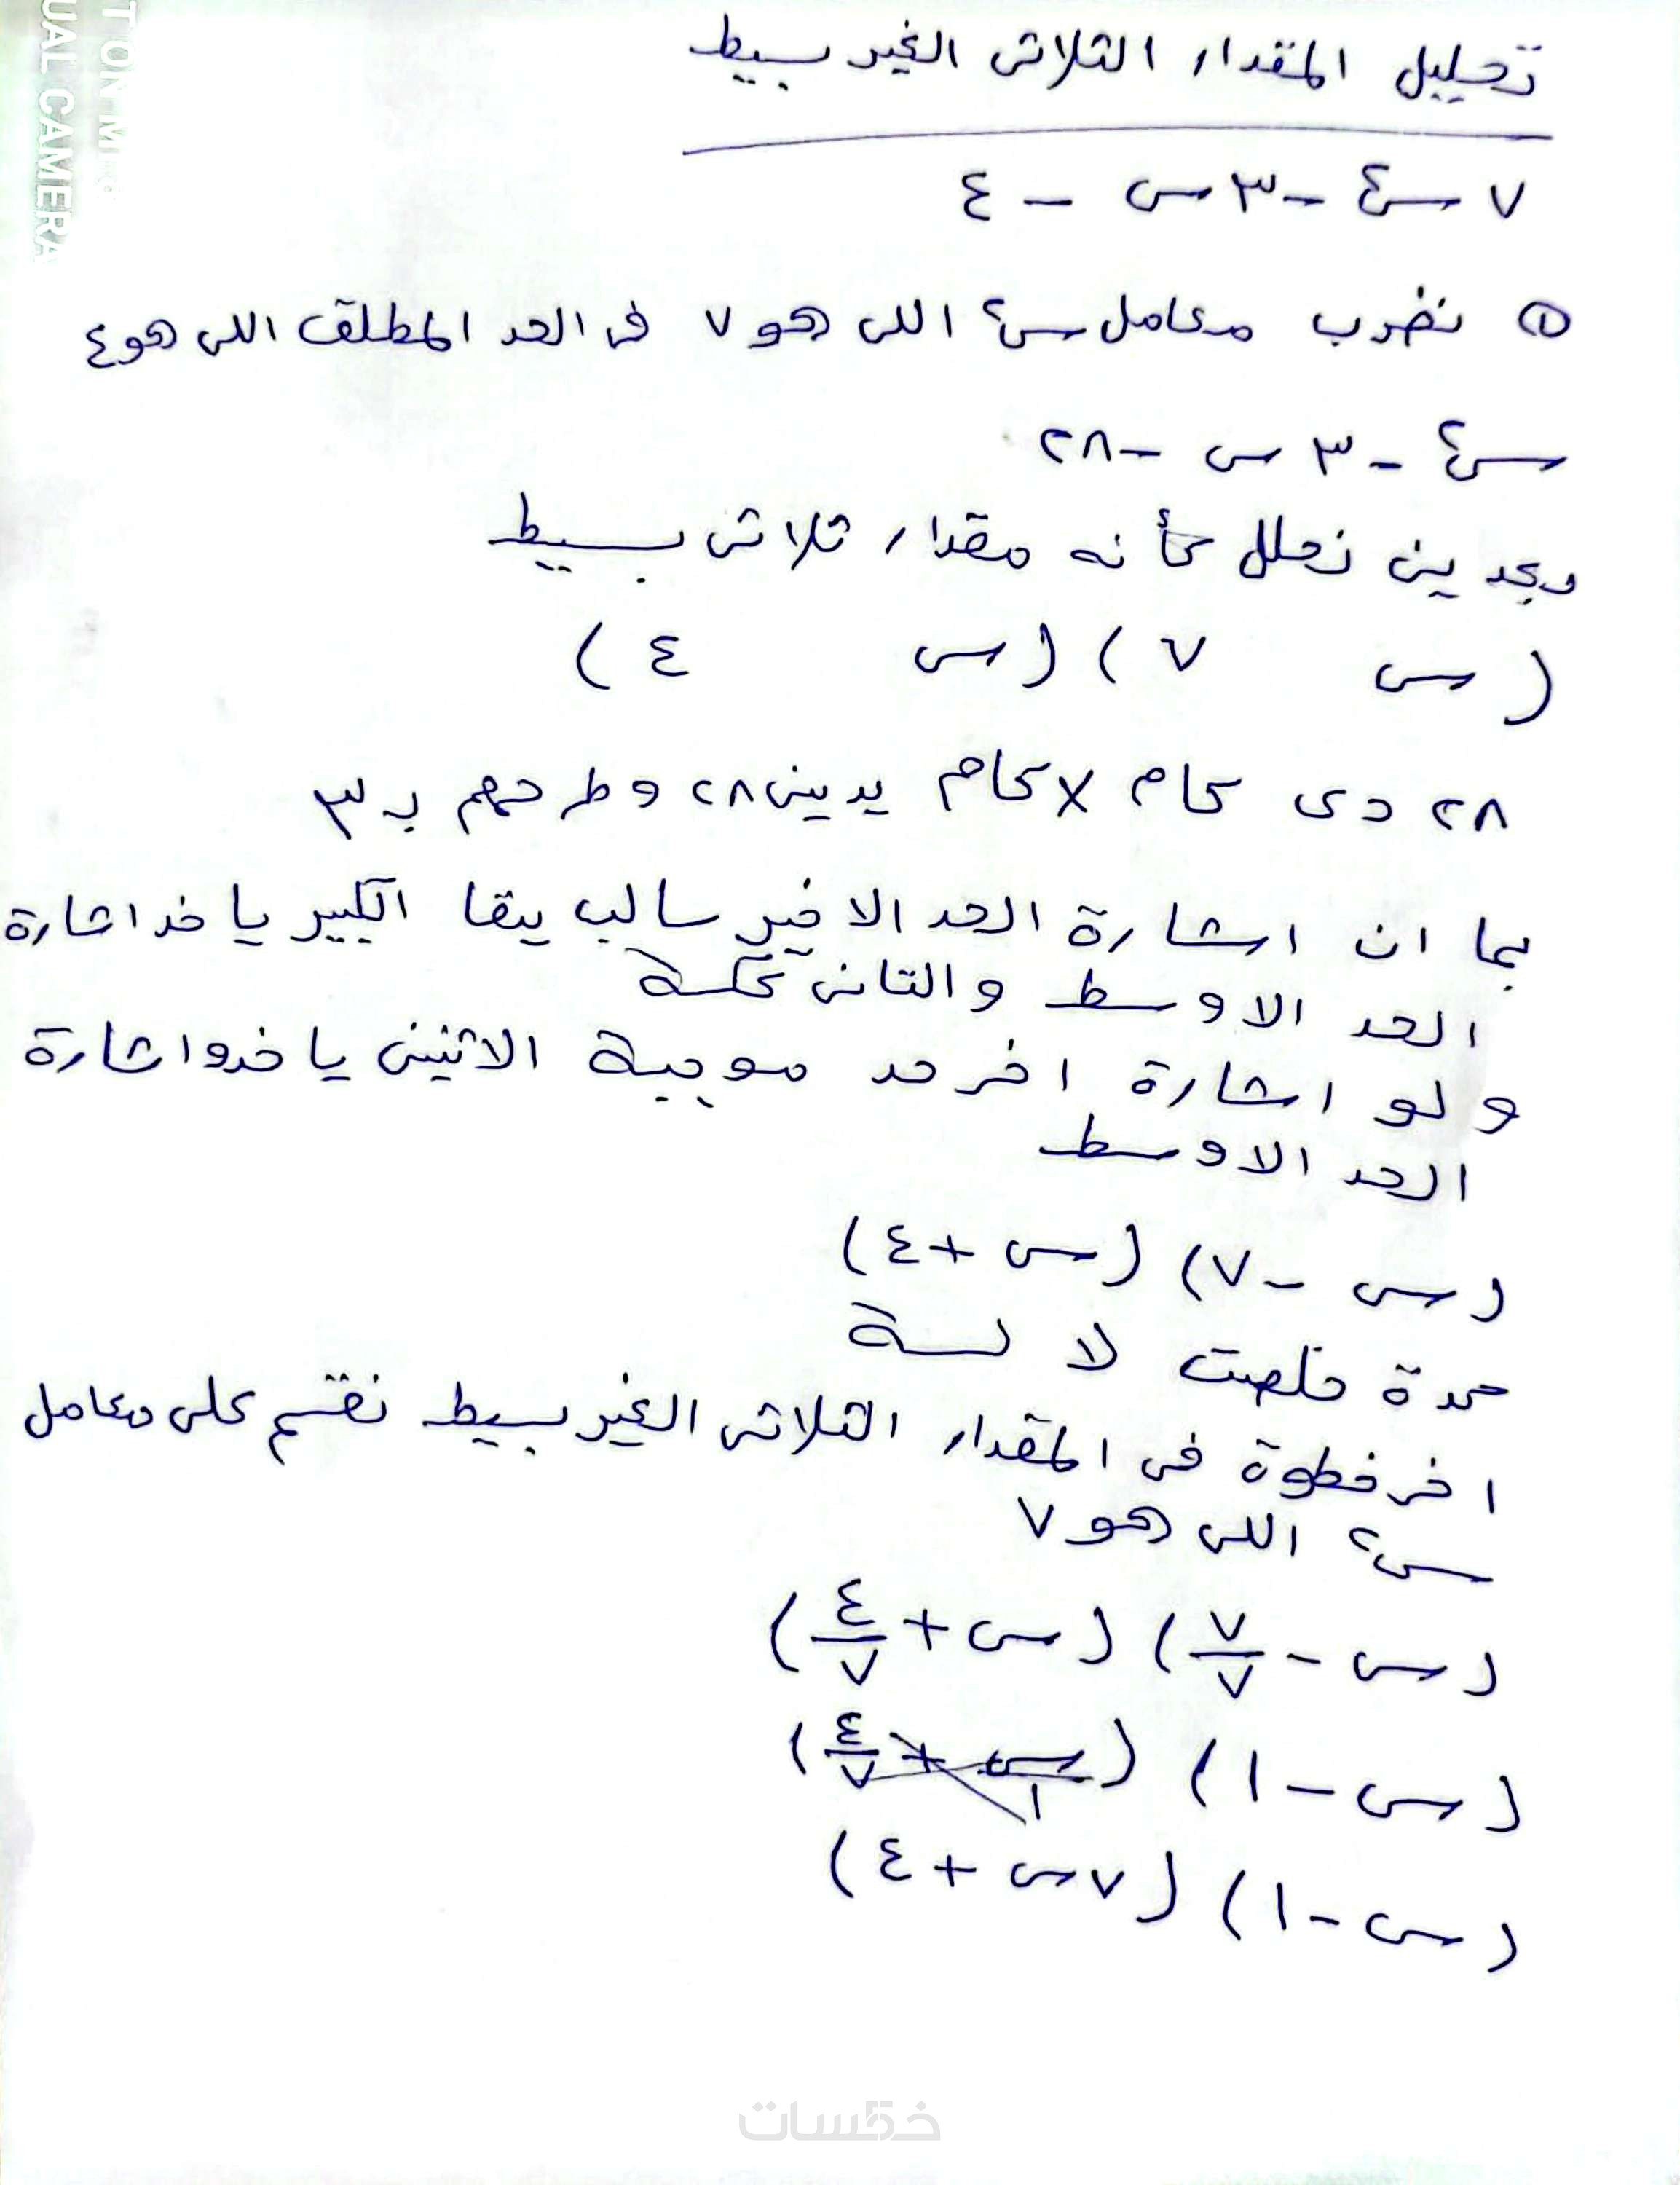 تحليل المقدار الثلاثى الغير بسيط
٧ س٢ - ٣ س - ٤
① نضرب معامل س٢ اللى هو ٧ فى الحد المطلق اللى هو ٤
س٢ - ٣ س - ٢٨
وبعدين نحلل كأنه مقدار ثلاثى بسيط
(س ٧) (س ٤)
٢٨ دى كام × كام يدينى ٢٨ وطرحهم بـ ٣
بما ان اشارة الحد الاخير سالب يبقا الكبير ياخد اشارة
الحد الاوسط والتانى عكسة
ولو اشارة اخر حد موجبة الاتنين ياخدوا اشارة
الحد الاوسط
(س - ٧) (س + ٤)
كدة خلصت لا لسة
اخر خطوة فى المقدار الثلاثى الغير بسيط نقسم على معامل
س٢ اللى هو ٧
(س - ٧/٧) (س + ٤/٧)
(س - ١) (س/١ + ٤/٧)
(س - ١) (٧س + ٤)
خمسات
UAL CAMERA